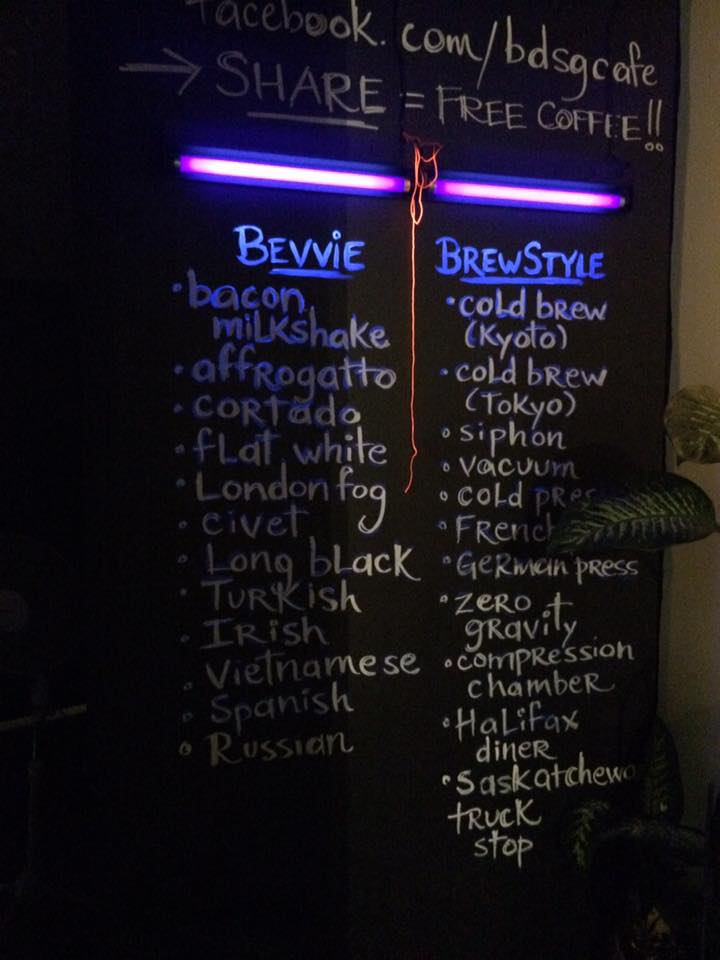 facebook.com/bdsgcafe
→ SHARE = FREE COFFEE!!
BEVVIE
• bacon
milkshake
• affrogatto
• cortado
• flat white
• London fog
• civet
• Long black
• Turkish
• Irish
• Vietnamese
• Spanish
• Russian
BREWSTYLE
• cold brew
(Kyoto)
• cold brew
(Tokyo)
• siphon
• vacuum
• cold pres
• French
• German press
• zero +
gravity
• compression
chamber
• Halifax
diner
• Saskatchewa
truck
stop